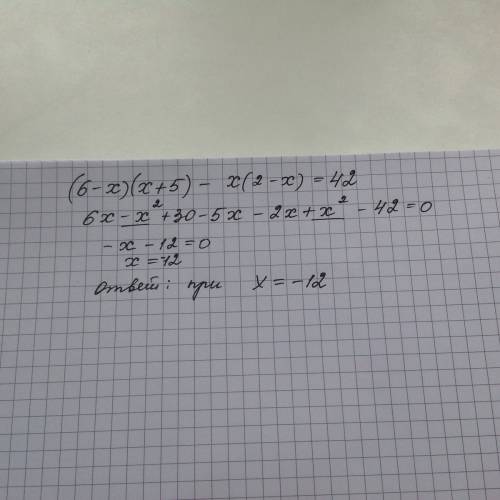 (6-x)(x+5) - x(2-x) = 42
6x - x² + 30 - 5x - 2x + x² - 42 = 0
-x - 12 = 0
x = -12
ответ: при x = -12